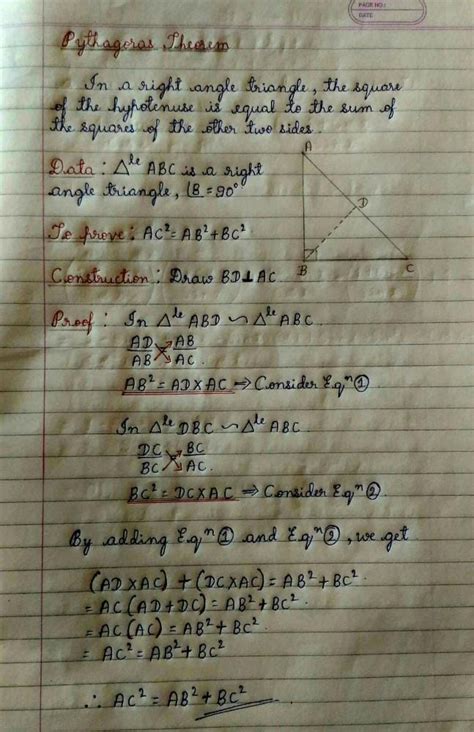 PAGE NO.:
DATE
Pythagoras Theorem
In a right angle triangle, the square
of the hypotenuse is equal to the sum of
the squares of the other two sides.
Data : Δˡᵉ ABC is a right
angle triangle, ∠B = 90°
To prove : AC² = AB² + BC²
Construction : Draw BD ⊥ AC
A
D
B
C
Proof : In Δˡᵉ ABD ∽ Δˡᵉ ABC.
AD/AB = AB/AC.
AB² = AD × AC ⇒ Consider Eqⁿ ①
In Δˡᵉ DBC ∽ Δˡᵉ ABC
DC/BC = BC/AC.
BC² = DC × AC ⇒ Consider Eqⁿ ②.
By adding Eqⁿ ① and Eqⁿ ②, we get
(AD × AC) + (DC × AC) = AB² + BC².
= AC (AD + DC) = AB² + BC².
= AC (AC) = AB² + BC²
= AC² = AB² + BC²
∴ AC² = AB² + BC²